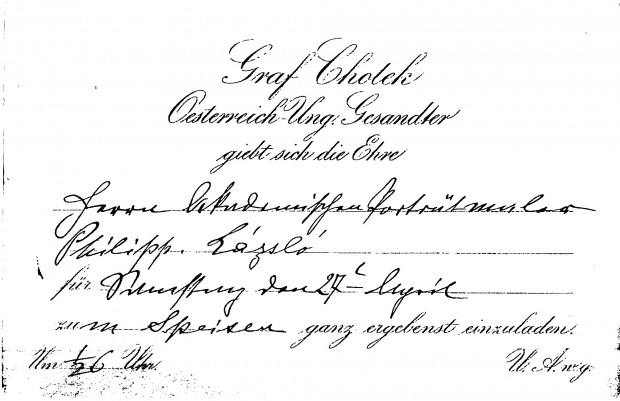 Graf Chotek
Oesterreich-Ung. Gesandter
giebt sich die Ehre
Herrn Akademischen Porträtmaler
Philipp. László
für Samstag den 27t April
zum Speisen ganz ergebenst einzuladen.
Um ½6 Uhr. U. A. w. g.